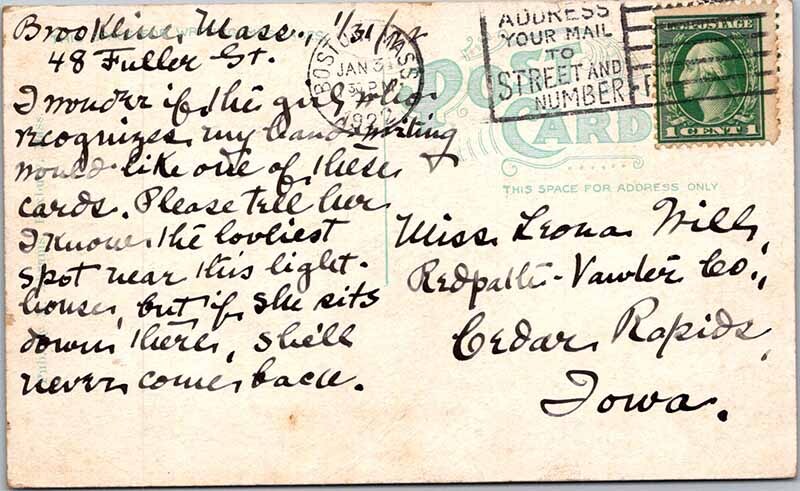 Brookline, Mass., 1/31/
48 Fuller St.
I wonder if the girl who
recognizes my handwriting
would like one of these
cards. Please tell her
I know the lovliest
spot near this light-
house, but if she sits
down there, she'll
never come back.
BOSTON MASS
JAN 31
PM
1922
ADDRESS
YOUR MAIL
TO
STREET AND
NUMBER
U.S. POSTAGE
1 CENT 1
POST
CARD
THIS SPACE FOR ADDRESS ONLY
Miss Leona Will,
Redpath-Vawter Co.,
Cedar Rapids,
Iowa.